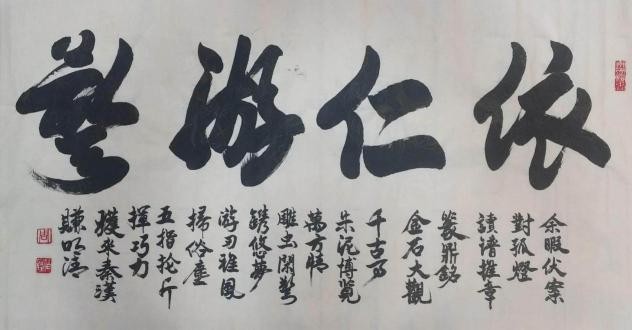 依仁游藝
余暇伏案
對孤燈
讀譜推章
篆鼎銘
金石大觀
千古
朱泥博覽
萬方情
雕虫閑
鐫悠夢
游刃雅風
掃俗塵
五指掄斤
揮巧力
獲來秦漢
賺明清